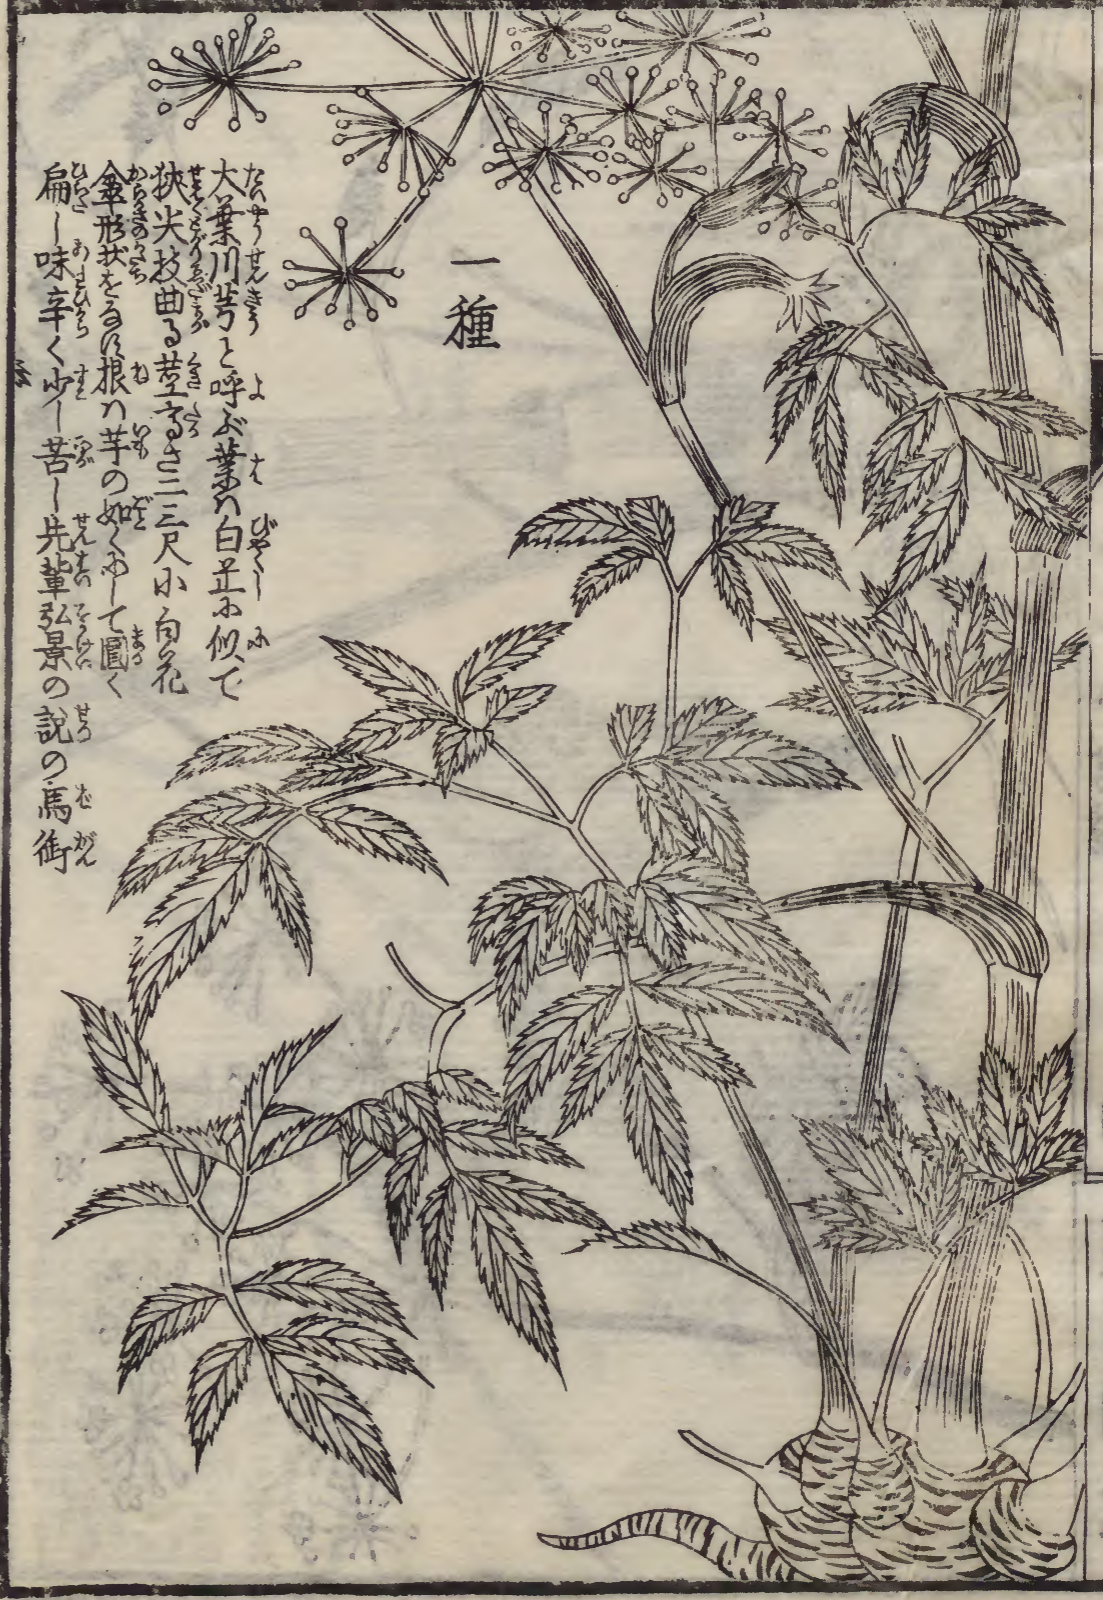 一種
大葉川芎と呼ぶ葉ハ白芷に似て
狭尖枝曲る茎高さ二三尺小白花
傘形状をなす根ハ芋の如くにして圓く
扁し味辛く少し苦し先輩弘景の説の馬銜